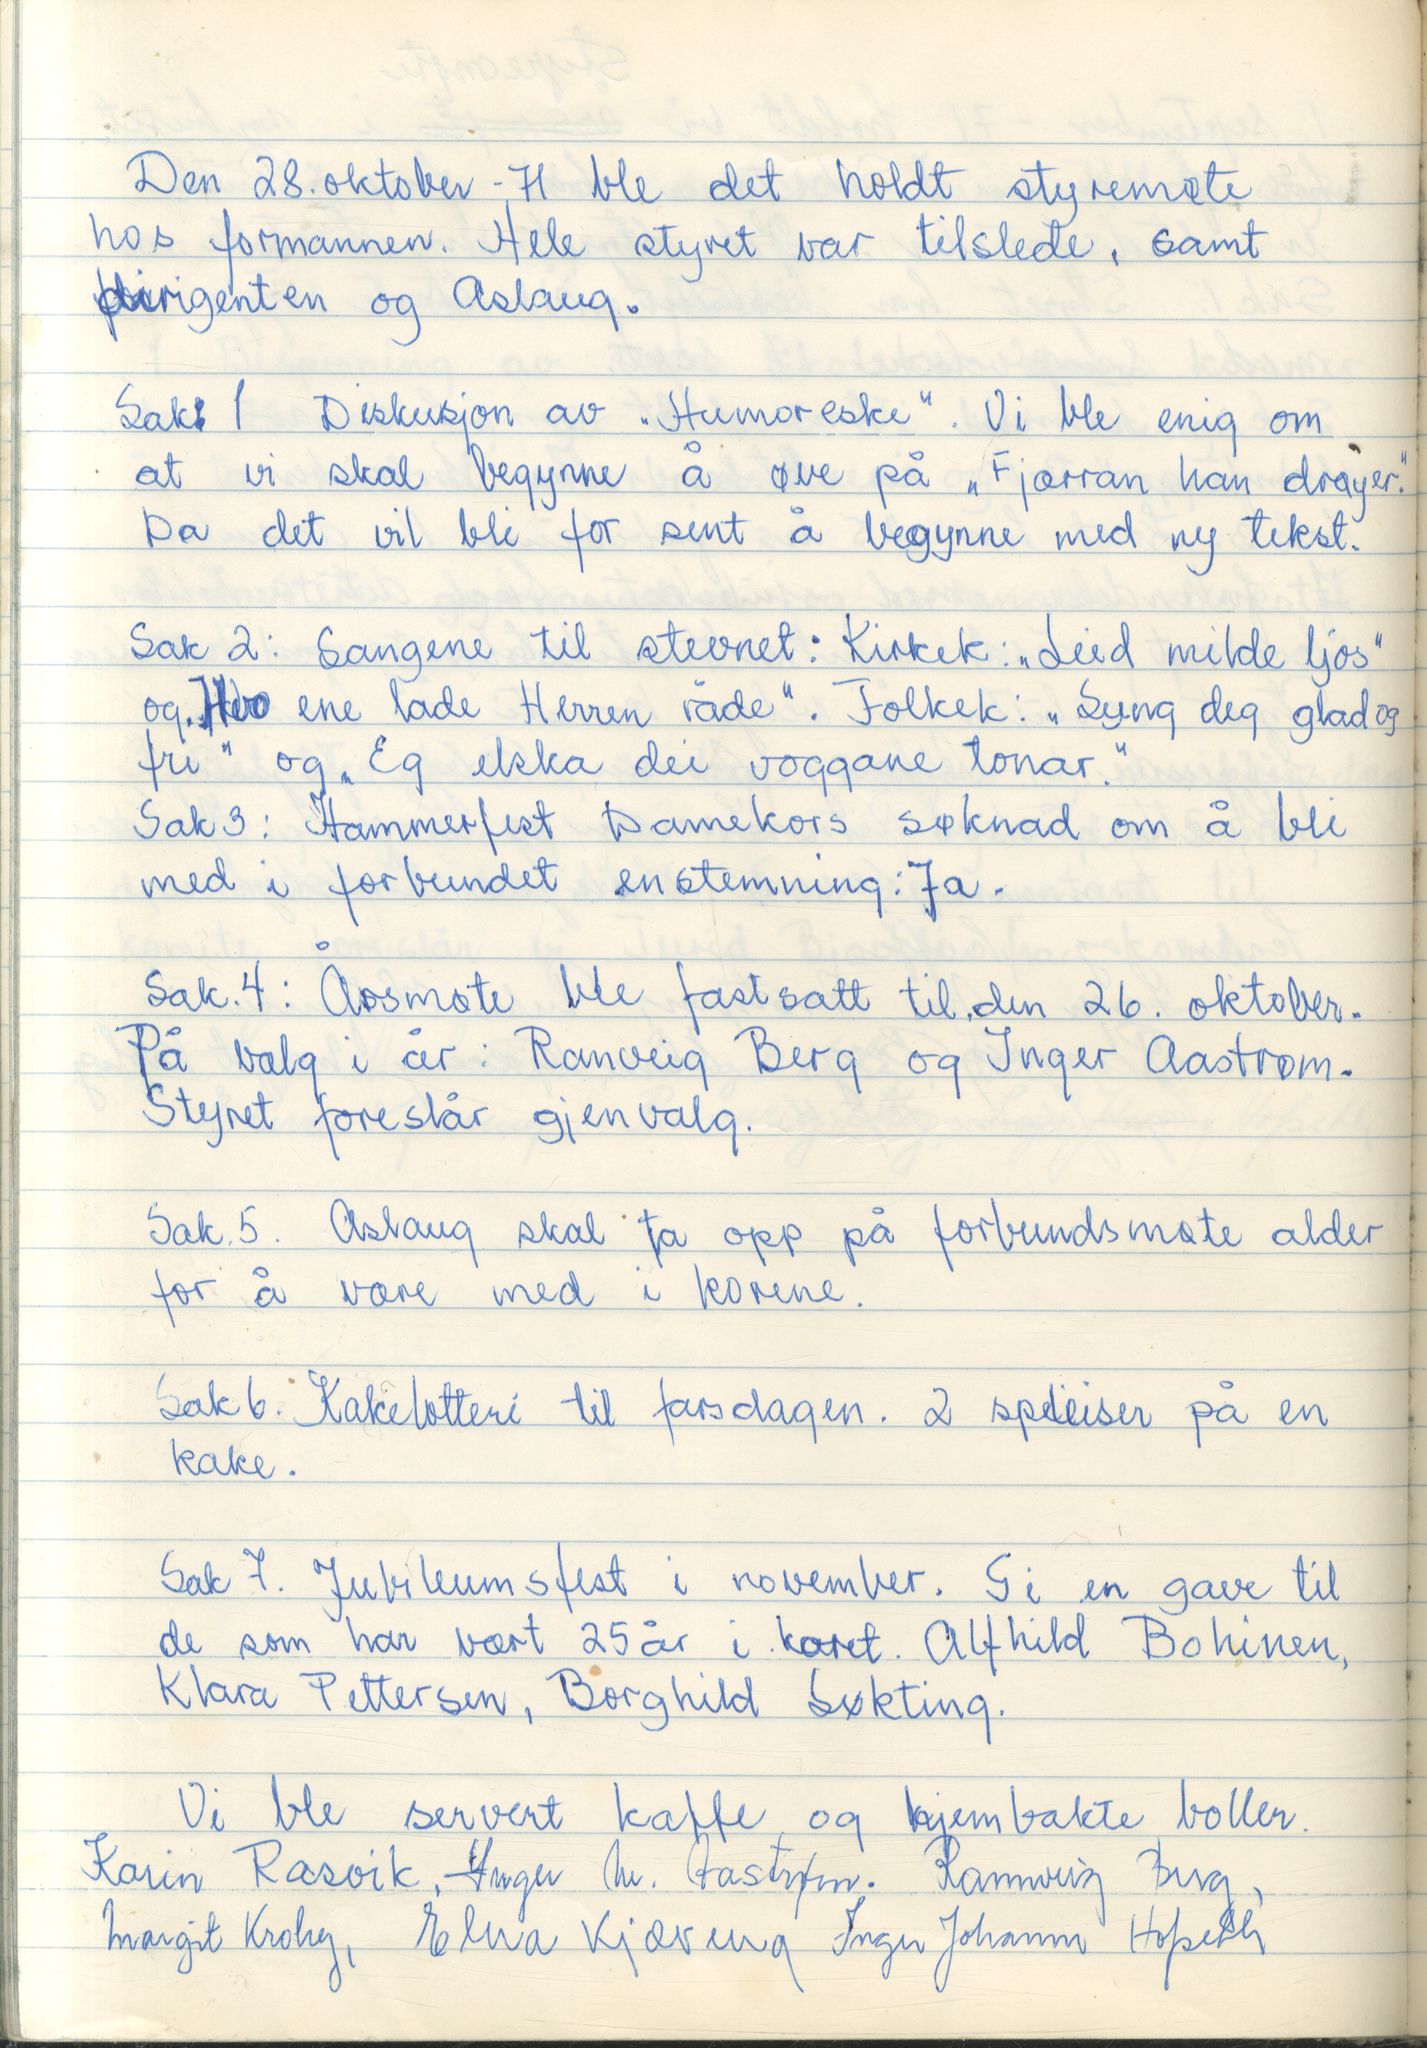 Den 28. oktober - 71 ble det holdt styremøte
hos formannen. Hele styret var tilstede, samt
dirigenten og Aslaug.
Sak 1 Diskusjon av "Humoreske". Vi ble enig om
at vi skal begynne å øve på "Fjærran han drøyer."
Da det vil bli for sent å begynne med ny tekst.
Sak 2: Sangene til stevnet: Kirkek: "Leid milde ljos"
og "Hvo ene lade Herren råde". Folkek: "Syng deg glad og
fri" og "Eg elska dei voggane tonar."
Sak 3: Hammerfest Damekors søknad om å bli
med i forbundet enstemning: Ja.
Sak. 4: Årsmøte ble fastsatt til den 26. oktober.
På valg i år: Ranveig Berg og Inger Aastrøm.
Styret foreslår gjenvalg.
Sak. 5. Aslaug skal ta opp på forbundsmøte alder
for å være med i korene.
Sak 6. Kakelotteri til farsdagen. 2 spleiser på en
kake.
Sak 7. Jubileumsfest i november. Gi en gave til
de som har vært 25 år i koret. Alfhild Bohinen,
Klara Pettersen, Borghild Søkting.
Vi ble servert kaffe og hjembakte boller.
Karin Rasvik, Inger M. Aastrøm. Rannveig Berg,
Margit Krohg, Elna Kjæreng Inger Johanne